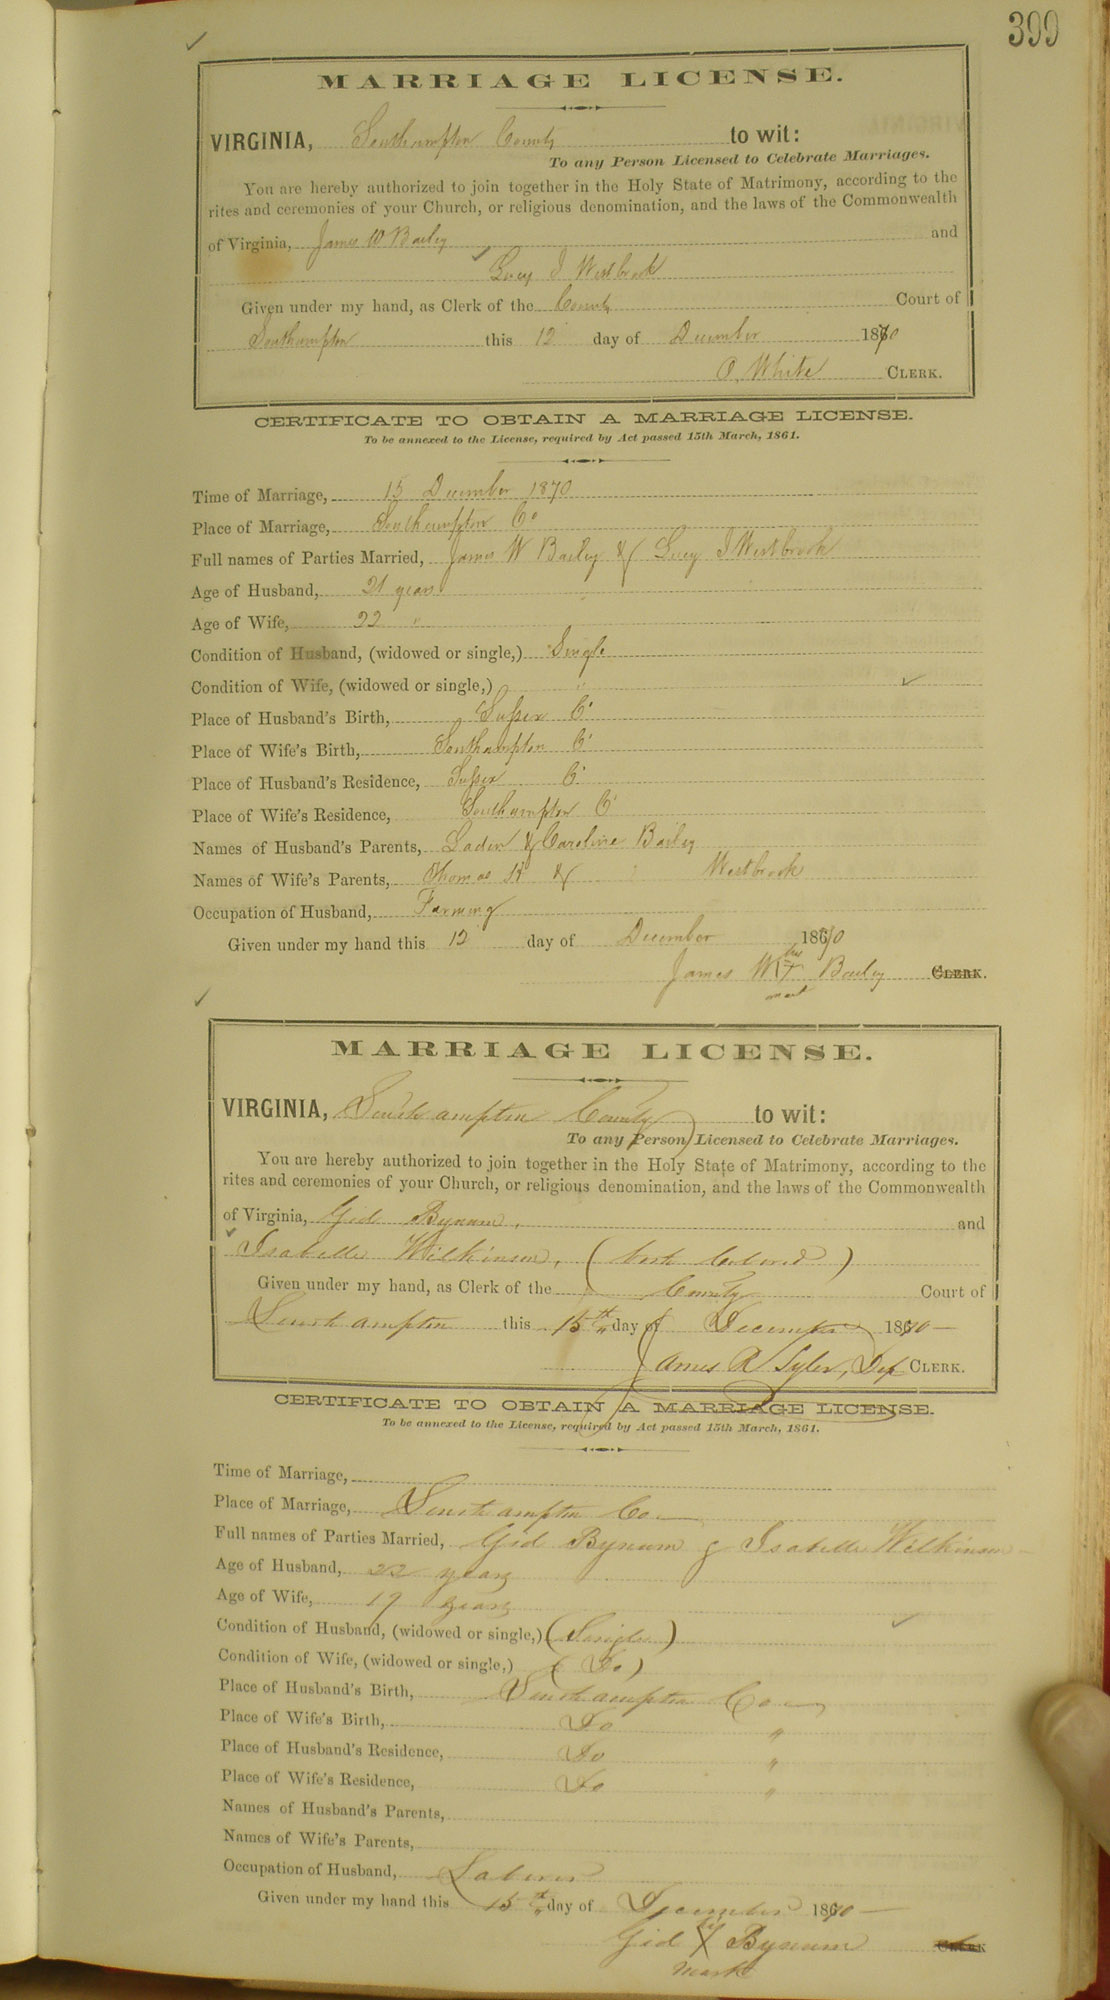 399
MARRIAGE LICENSE.
VIRGINIA, Southampton County to wit:
To any Person Licensed to Celebrate Marriages.
You are hereby authorized to join together in the Holy State of Matrimony, according to the
rites and ceremonies of your Church, or religious denomination, and the laws of the Commonwealth
of Virginia, James W Bailey and
Lucy J Westbrook
Given under my hand, as Clerk of the County Court of
Southampton this 12 day of December 1870
O. White CLERK.
CERTIFICATE TO OBTAIN A MARRIAGE LICENSE.
To be annexed to the License, required by Act passed 15th March, 1861.
Time of Marriage, 15 December 1870
Place of Marriage, Southampton Co
Full names of Parties Married, James W Bailey & Lucy J Westbrook
Age of Husband, 21 years
Age of Wife, 22 "
Condition of Husband, (widowed or single,) Single
Condition of Wife, (widowed or single,) "
Place of Husband's Birth, Sussex Co
Place of Wife's Birth, Southampton Co
Place of Husband's Residence, Sussex Co
Place of Wife's Residence, Southampton Co
Names of Husband's Parents, & Caroline Bailey
Names of Wife's Parents, Thomas & Westbrook
Occupation of Husband, Farming
Given under my hand this 12 day of December 1870
James W his + Bailey CLERK.
mark
MARRIAGE LICENSE.
VIRGINIA, Southampton County to wit:
To any Person Licensed to Celebrate Marriages.
You are hereby authorized to join together in the Holy State of Matrimony, according to the
rites and ceremonies of your Church, or religious denomination, and the laws of the Commonwealth
of Virginia, Gid Bynum, and
Isabella Wilkinson, (both Colored)
Given under my hand, as Clerk of the County Court of
Southampton this 15th day of December 1870
James R Syler, Dep CLERK.
CERTIFICATE TO OBTAIN A MARRIAGE LICENSE.
To be annexed to the License, required by Act passed 15th March, 1861.
Time of Marriage,
Place of Marriage, Southampton Co
Full names of Parties Married, Gid Bynum & Isabella Wilkinson
Age of Husband, 22 years
Age of Wife, 19 years
Condition of Husband, (widowed or single,) (Single)
Condition of Wife, (widowed or single,) (Do)
Place of Husband's Birth, Southampton Co
Place of Wife's Birth, Do "
Place of Husband's Residence, Do "
Place of Wife's Residence, Do "
Names of Husband's Parents,
Names of Wife's Parents,
Occupation of Husband, Laborer
Given under my hand this 15th day of December 1870
Gid his X Bynum CLERK
mark